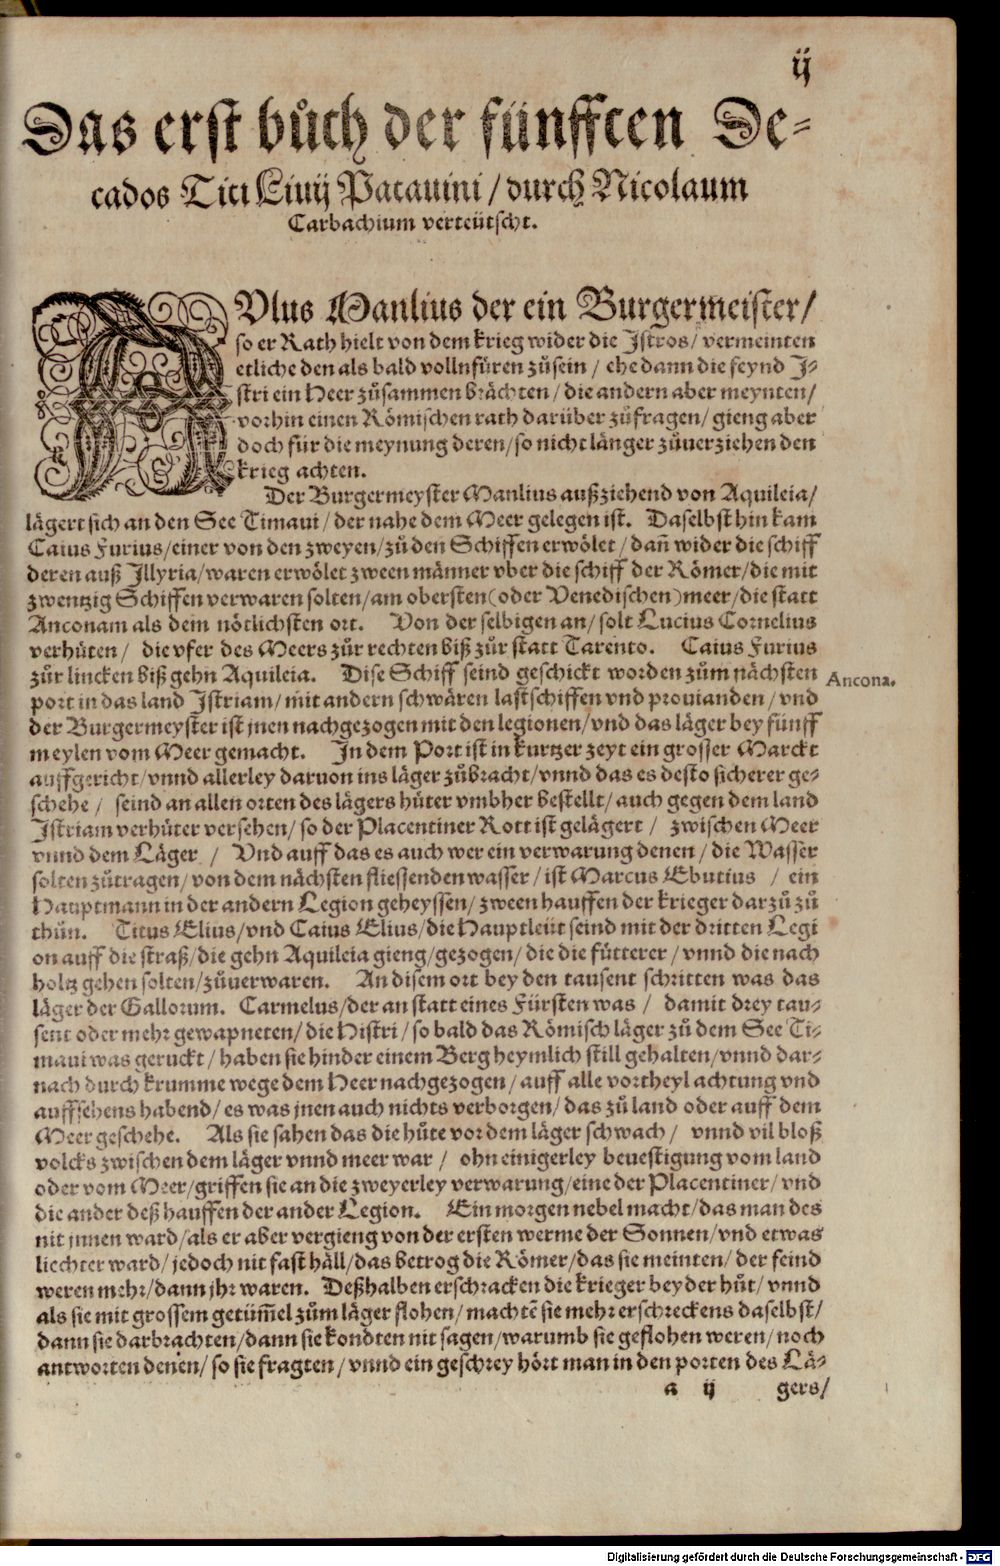 ij
Das erst bůch der fünfften De-
cados Titi Liuij Patauini / durch Nicolaum
Carbachium verteütscht.
AVlus Manlius der ein Burgermeister/
so er Rath hielt von dem krieg wider die Istros/ vermeinten
etliche den als bald vollnfüren zůsein / ehe dann die feynd I-
stri ein Heer zůsammen brächten / die andern aber meynten/
vorhin einen Römischen rath darüber zůfragen/ gieng aber
doch für die meynung deren/ so nicht länger zůuerziehen den
krieg achten.
Der Burgermeyster Manlius außziehend von Aquileia/
lägert sich an den See Timaui / der nahe dem Meer gelegen ist. Daselbst hin kam
Caius Furius/einer von den zweyen/zů den Schiffen erwölet / dañ wider die schiff
deren auß Illyria/waren erwölet zween männer vber die schiff der Römer/die mit
zwentzig Schiffen verwaren solten/am obersten(oder Venedischen)meer/die statt
Anconam als dem nötlichsten ort. Von der selbigen an/ solt Lucius Cornelius
verhüten/ die vfer des Meers zůr rechten biß zůr statt Tarento. Caius Furius
zůr lincken biß gehn Aquileia. Dise Schiff seind geschickt worden zům nächsten
port in das land Istriam/ mit andern schwären lastschiffen vnd prouianden / vnd
der Burgermeyster ist jnen nachgezogen mit den legionen/vnd das läger bey fünff
meylen vom Meer gemacht. In dem Port ist in kurtzer zeyt ein grosser Marckt
auffgericht/vnnd allerley daruon ins läger zůbracht/vnnd das es desto sicherer ge-
schehe / seind an allen orten des lägers hüter vmbher bestellt/ auch gegen dem land
Istriam verhüter versehen/ so der Placentiner Rott ist gelägert / zwischen Meer
vnnd dem Läger / Vnd auff das es auch wer ein verwarung denen / die Wasser
solten zůtragen/ von dem nächsten fliessenden wasser / ist Marcus Ebutius / ein
Hauptmann in der andern Legion geheyssen/ zween hauffen der krieger darzů zů
thůn. Titus Elius/vnd Caius Elius/die Hauptleüt seind mit der dritten Legi
on auff die straß/die gehn Aquileia gieng/gezogen/ die die fütterer / vnnd die nach
holtz gehen solten/zůuerwaren. An disem ort bey den tausent schritten was das
läger der Gallorum. Carmelus/der an statt eines Fürsten was / damit drey tau-
sent oder mehr gewapneten/ die Histri/ so bald das Römisch läger zů dem See Ti-
maui was geruckt/ haben sie hinder einem Berg heymlich still gehalten/vnnd dar-
nach durch krumme wege dem Heer nachgezogen / auff alle vortheyl achtung vnd
auffsehens habend/ es was jnen auch nichts verborgen/ das zů land oder auff dem
Meer geschehe. Als sie sahen das die hůte vor dem läger schwach / vnnd vil bloß
volcks zwischen dem läger vnnd meer war / ohn einigerley beuestigung vom land
oder vom Meer/griffen sie an die zweyerley verwarung/eine der Placentiner/ vnd
die ander deß hauffen der ander Legion. Ein morgen nebel macht/das man des
nit jnnen ward/als er aber vergieng von der ersten werme der Sonnen/vnd etwas
liechter ward/jedoch nit fast häll/das betrog die Römer/das sie meinten/ der feind
weren mehr/dann jhr waren. Deßhalben erschracken die krieger bey der hůt/ vnnd
als sie mit grossem getüm̃el zům läger flohen/ machtẽ sie mehr erschreckens daselbst/
dann sie darbrachten/dann sie kondten nit sagen/warumb sie geflohen weren/ noch
antworten denen/ so sie fragten / vnnd ein geschrey hört man in den porten des Lä-
a ij gers/
Ancona.
Digitalisierung gefördert durch die Deutsche Forschungsgemeinschaft - DFG